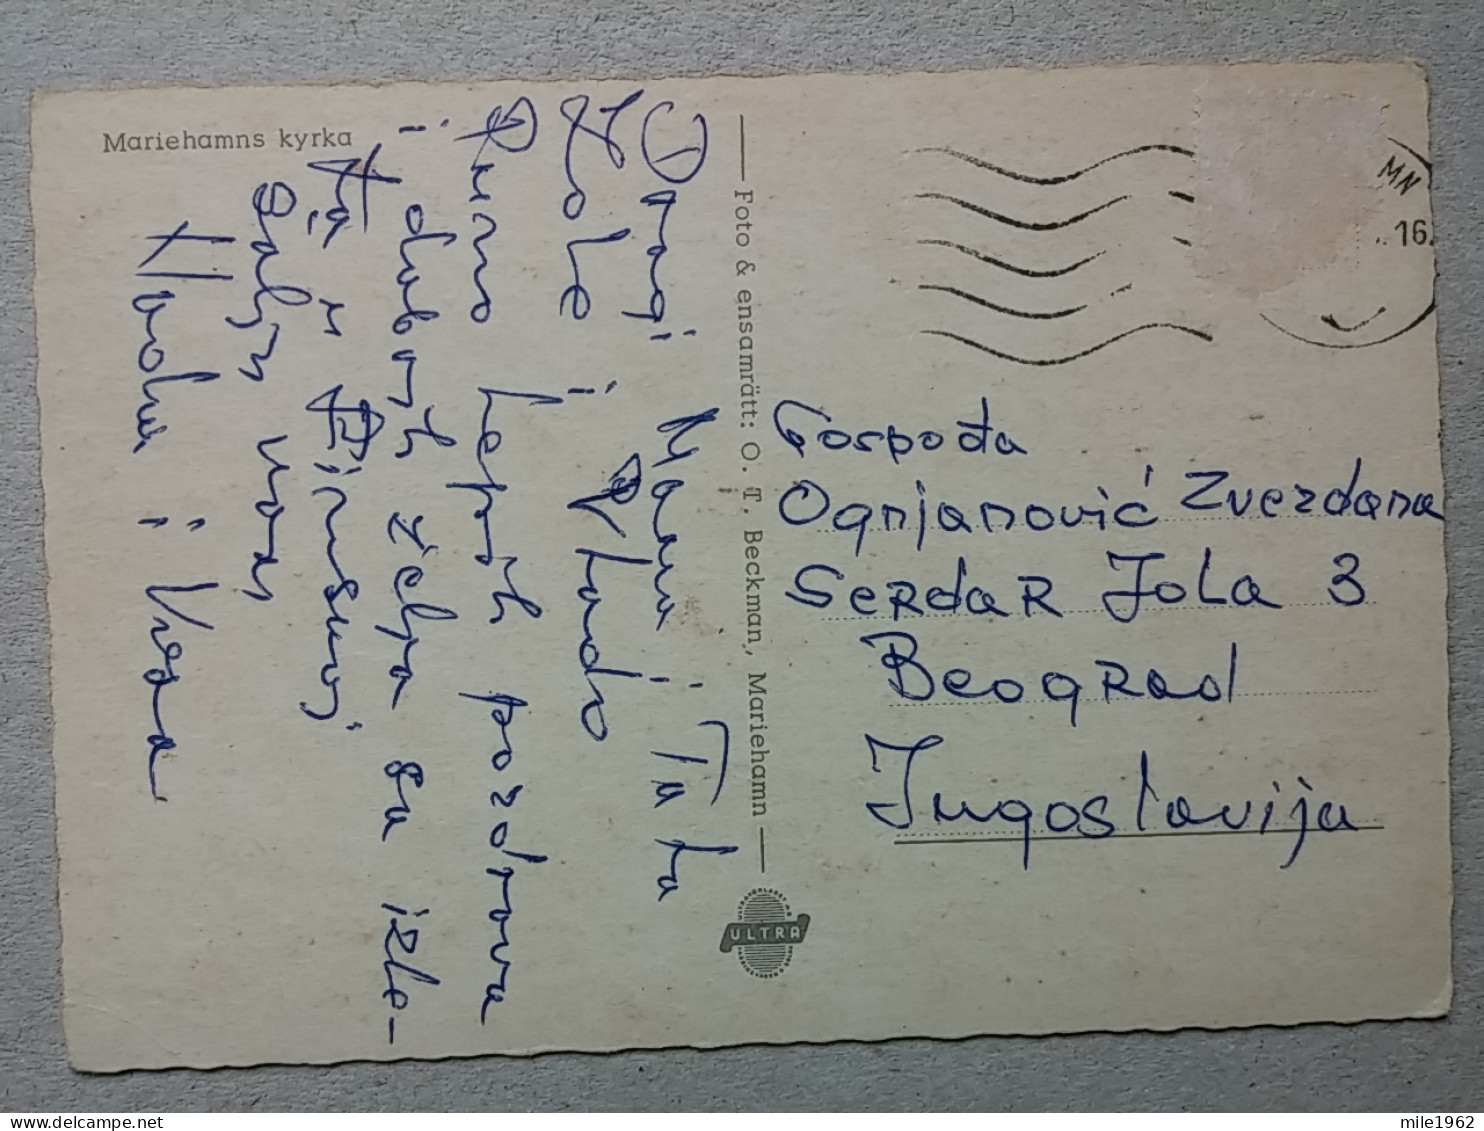 Mariehamns kyrka
Dragi Mama i Tata
i
Puno lepih pozdrova
i dobrih želja sa izle-
ta u Finskoj
šalju vam
i Vesna
Foto & ensamrätt: O. T. Beckman, Mariehamn
ULTRA
MN
16.
Gospođa
Ognjanović Zvezdana
Serdar Jola 3
Beograd
Jugoslavija
mile1962